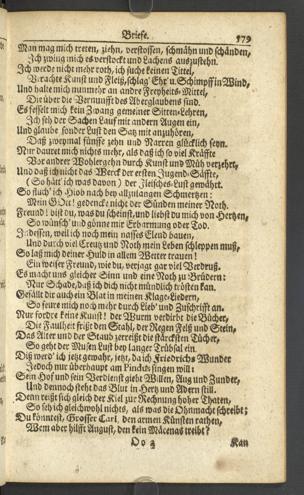 Briefe. 579
Man mag mich treten, ziehn, verstossen, schmähn und schänden,
Ich zwing mich es verstockt und Lachens auszustehn.
Ich werde nicht mehr roth, ich suche keinen Tittel,
Verachte Kunst und Fleiß, schlag' Ehr' u. Schimpff in Wind,
Und halte mich nunmehr an andre Freyheits-Mittel,
Die über die Vernunfft des Aberglaubens sind.
Es fesselt mich kein Zwang gemeiner Sitten-Lehren,
Ich seh der Sachen Lauf mit andern Augen ein,
Und glaube sonder Lust den Satz mit anzuhören,
Daß zweymal fünffe zehn und Narren glücklich seyn.
Nur dauret mich nichts mehr, als daß ich so viel Kräffte
Vor andrer Wohlergehn durch Kunst und Müh verzehrt,
Und daß ich nicht das Werck der ersten Jugend-Säffte,
(So hätt' ich was davon) der Fleisches-Lust gewährt.
So fluch' ich Hiob nach bey allzulangen Schmertzen:
Mein GOtt! gedencke nicht der Sünden meiner Noth.
Freund! bist du, was du scheinst, und liebst du mich von Hertzen,
So wünsch' und gönne mir Erbarmung oder Tod.
Indessen, weil ich noch mein nasses Elend bauen,
Und durch viel Creutz und Noth mein Leben schleppen muß,
So laß mich deiner Huld in allem Wetter trauen!
Ein weiser Freund, wie du, verjagt gar viel Verdruß.
Es macht uns gleicher Sinn und eine Noth zu Brüdern:
Nur Schade, daß ich dich nicht mündlich trösten kan.
Gefällt dir auch ein Blat in meinen Klage-Liedern,
So feure mich noch mehr durch Lieb' und Zuschrifft an.
Nur fordre keine Kunst! der Wurm verdirbt die Bücher,
Die Faulheit frißt den Stahl, der Regen Felß und Stein,
Das Alter und der Staub zerreißt die stärcksten Tücher,
So geht der Musen Lust bey langer Trübsal ein.
Diß werd' ich jetzt gewahr, jetzt, da ich Friedrichs Wunder
Jedoch nur überhaupt am Pincks singen will:
Sein Hof und sein Verdienst giebt Willen, Aug und Zunder,
Und dennoch steht das Blut in Hertz und Adern still.
Denn reißt sich gleich der Kiel zur Rechnung hoher Thaten,
So seh ich gleichwohl nichts, als was die Ohnmacht schreibt;
Du könntest, Grosser Carl, den armen Künsten rathen,
Wem aber hilfft August, den kein Mäcenas treibt?
Oo 2 Kan